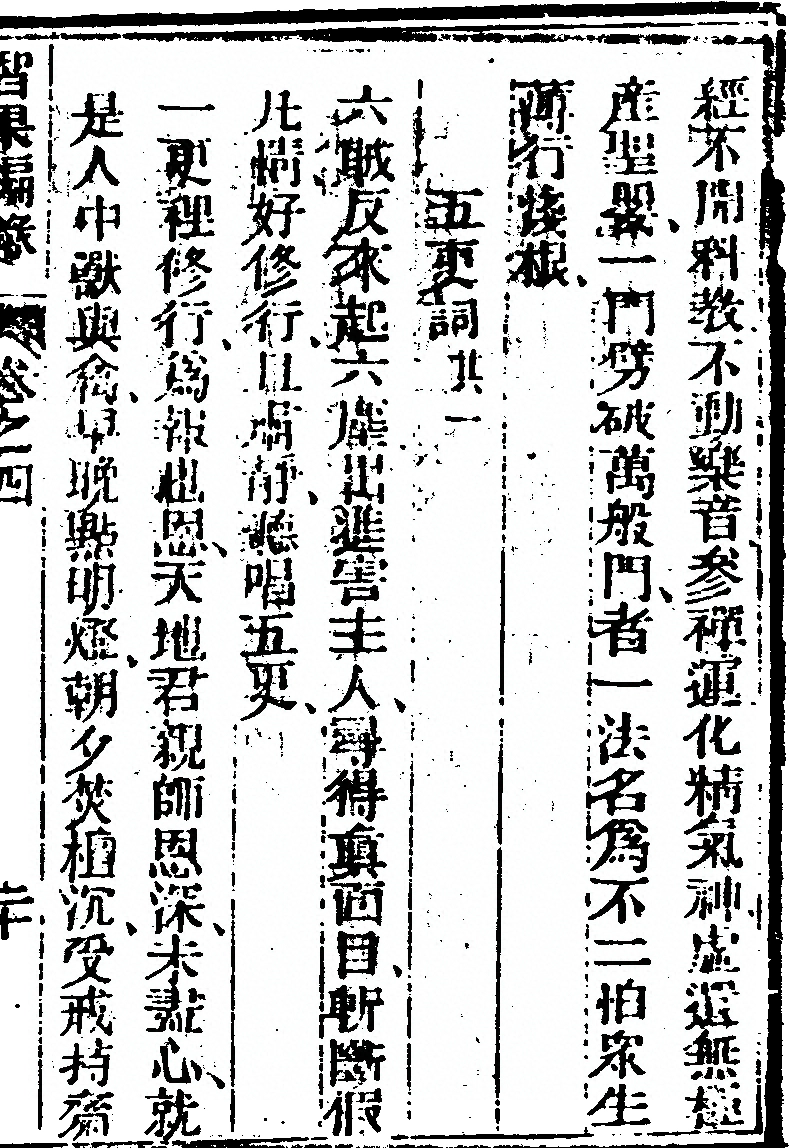 經不開科教不動樂音參禪運化精氣神虛還無極
產聖嬰、一門劈破萬般門、者一法名為不二怕眾生
薄行淺根、
五更詞其一
六賊反來起六塵出進害主人、尋得真面目、斬斷假
凡情好修行、且端靜、聽唱五更、
一更裡修行、為報出恩、天地君親師恩深、未點心、就
是人中獸與禽、早晚點明燈、朝夕焚檀沉、受戒持齋
智果編錄 卷之四 二十